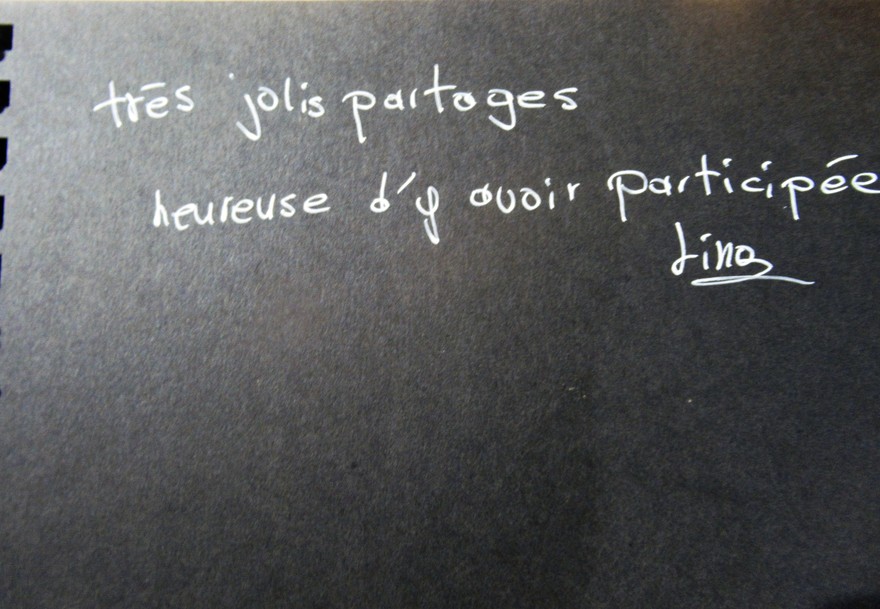 très jolis partages
heureuse d'y avoir participée
Lina